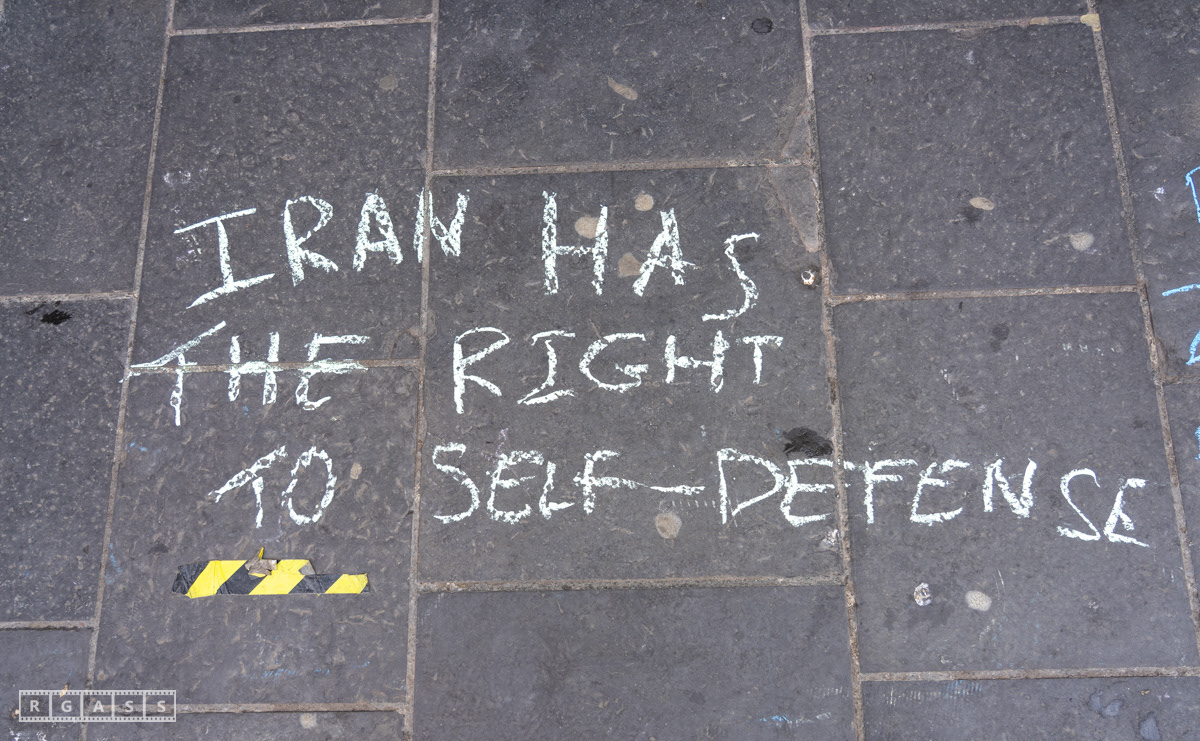 IRAN HAS
THE RIGHT
TO SELF-DEFENSE
RGASS